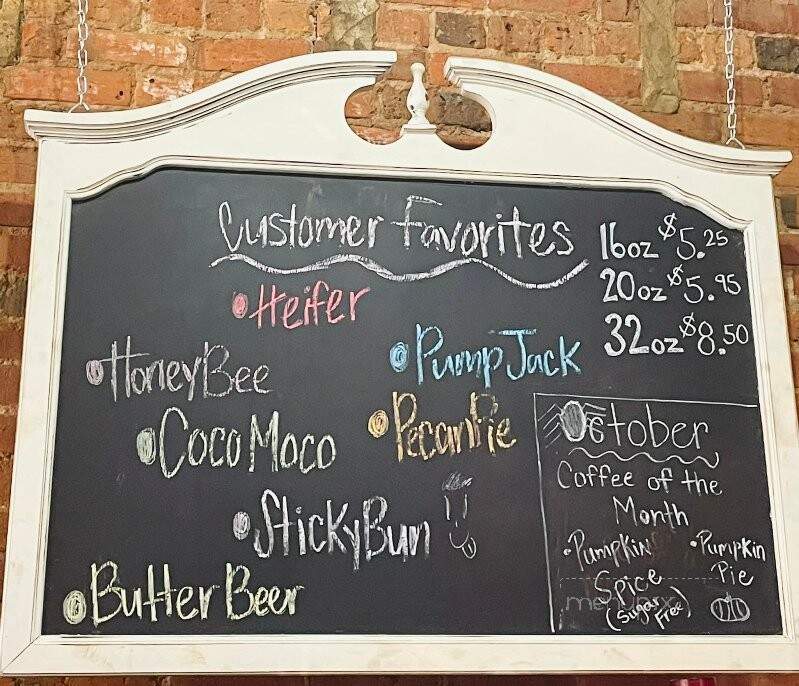 Customer Favorites
16oz $5.25
20oz $5.95
32oz $8.50
Heifer
HoneyBee
PumpJack
CocoMoco
PecanPie
StickyBun
ButterBeer
October
Coffee of the
Month
•Pumpkin
Spice
(Sugar
Free)
•Pumpkin
Pie
menupix